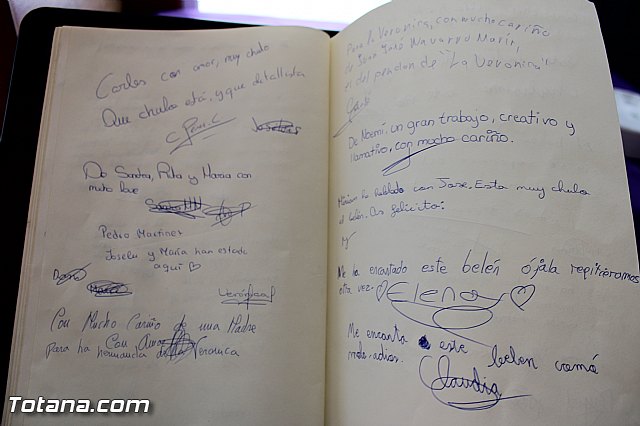 Carlos con amor, muy chulo
Que chulo está, y que detallista
De Sandra, Rita y Maria con
mucho love
Pedro Martinez
Joselu y María han estado
aquí ♡
Verónica
Con Mucho Cariño de una Madre
Con Amor
para ha hermandad de la Veronica
Para la Veronica, con mucho cariño
de Juan José Navarro Marín,
el del pendon de "La Veronica"
De Noemí, un gran trabajo, creativo y
llamativo, con mucho cariño.
Miriam ha hablado con Jose. Esta muy chulo
el belén. Os felicito.
Me ha encantado este belén ójala repitieramos
otra vez.
♡Elena♡
Me encanta este belen
mole. adios.
Claudia
Totana.com